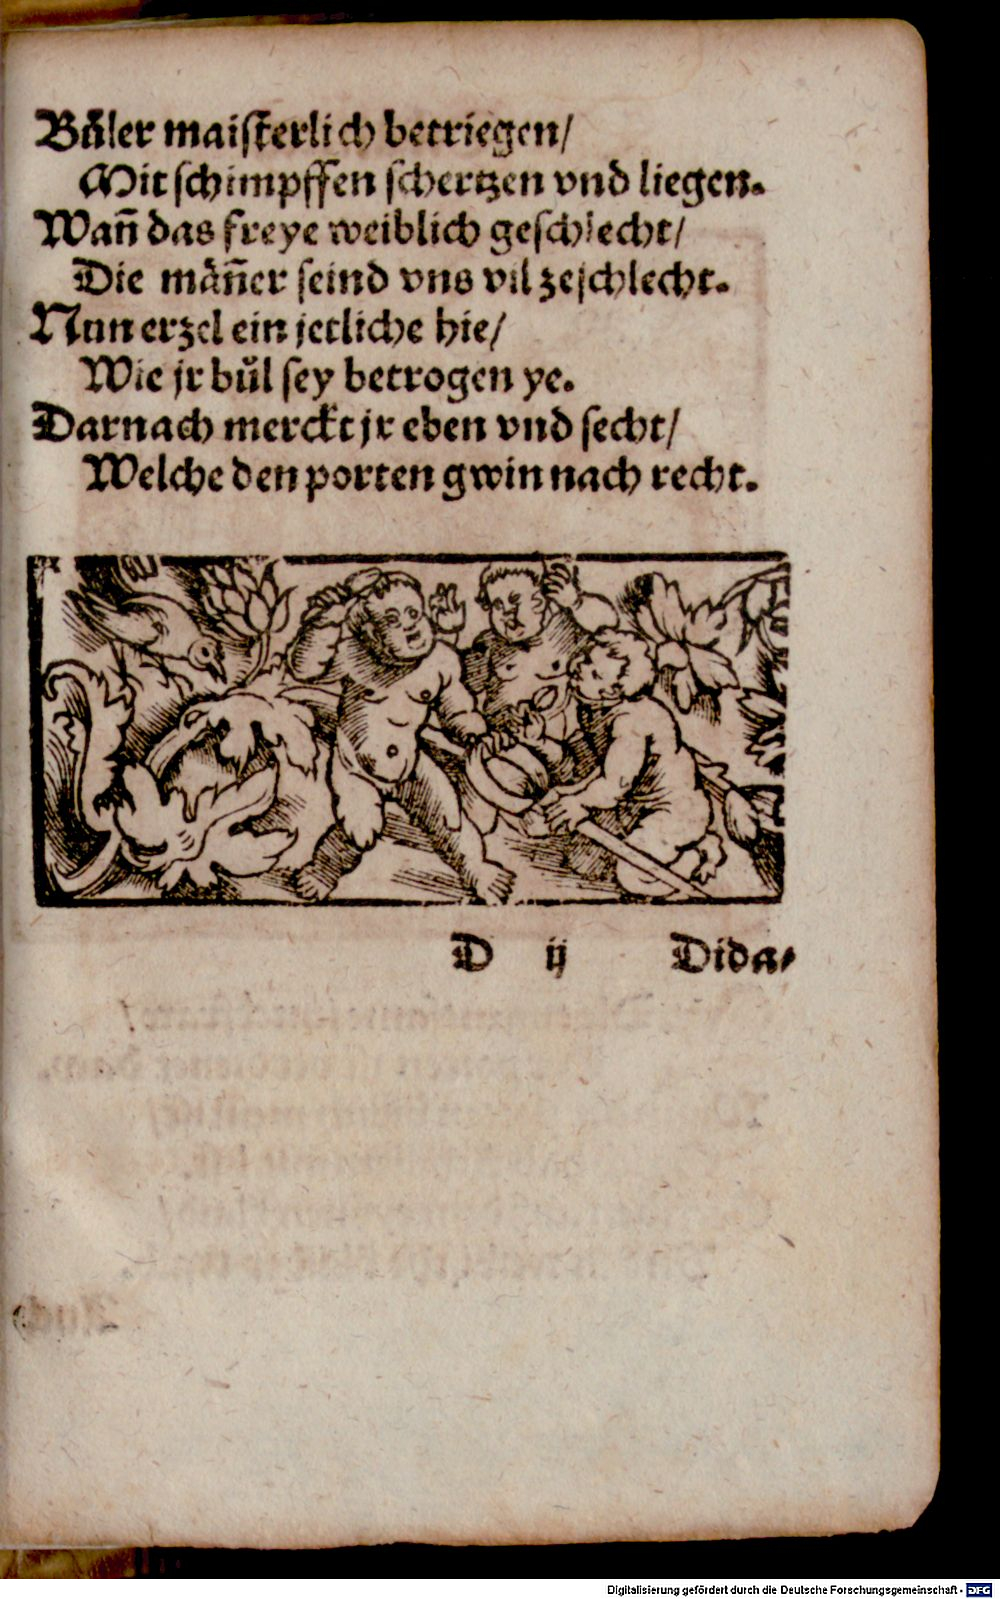 Bůler maisterlich betriegen/
Mit schimpffen schertzen vnd liegen.
Wañ das freye weiblich geschlecht/
Die mäñer seind vns vil zeschlecht.
Nun erzel ein jetliche hie/
Wie jr bůl sey betrogen ye.
Darnach merckt jr eben vnd secht/
Welche den porten gwin nach recht.
D ij Dida⸗
Digitalisierung gefördert durch die Deutsche Forschungsgemeinschaft - DFG